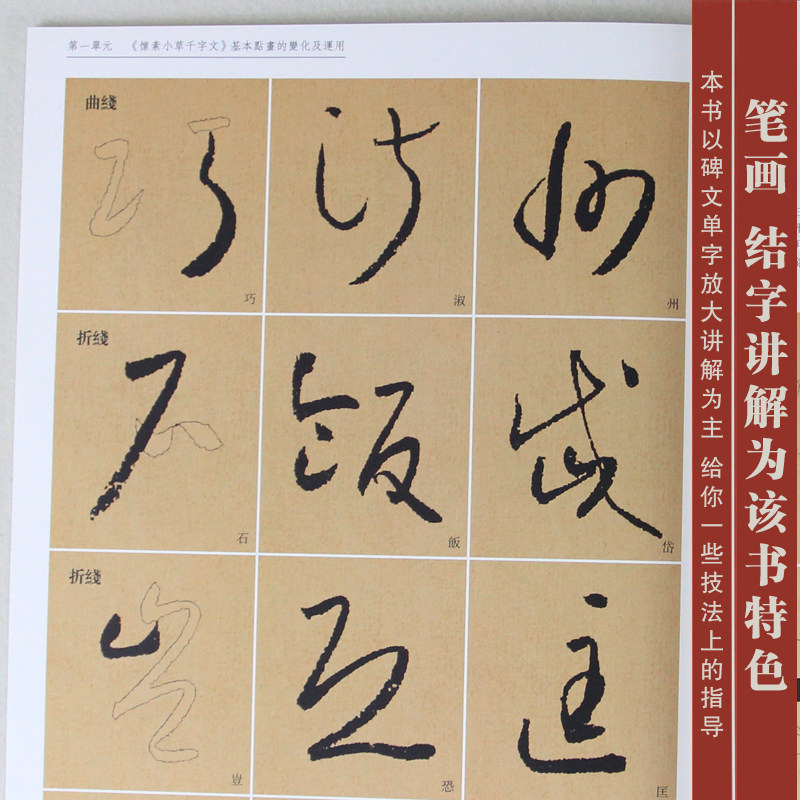 第一單元 《懷素小草千字文》基本點畫的變化及運用
曲綫
巧
淑
州
折綫
石
飯
岱
折綫
豈
恐
匡
笔画 结字讲解为该书特色
本书以碑文单字放大讲解为主 给你一些技法上的指导